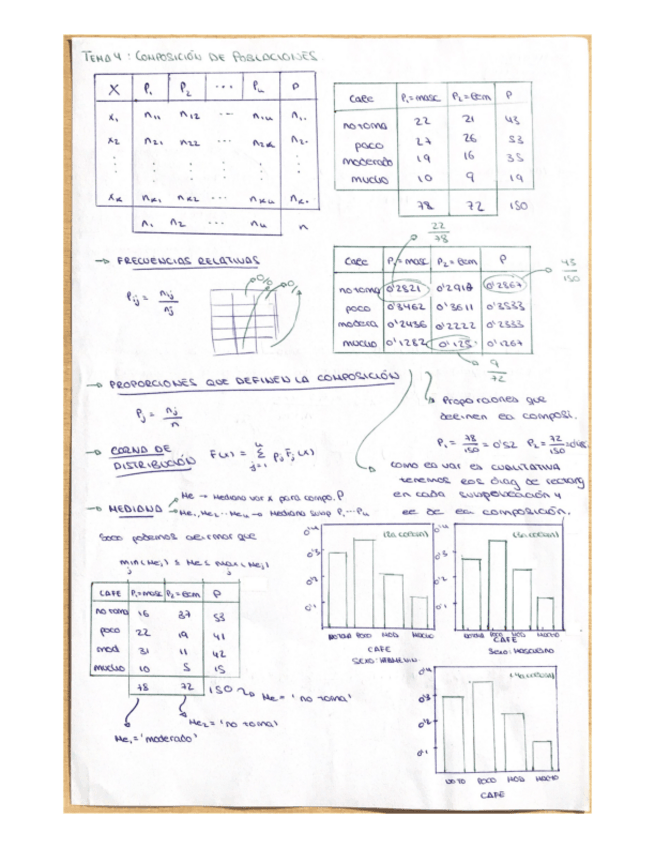 TEMA 4: COMPOSICIÓN DE POBLACIONES
X P₁ P₂ ... Pu P
x₁ n₁₁ n₁₂ ... n₁u n₁.
x₂ n₂₁ n₂₂ ... n₂u n₂.
xk nk₁ nk₂ ... nku nk.
n₁ n₂ ... nu n
CAFE P₁=masc P₂=fem P
no toma 22 21 43
poco 27 26 53
moderado 19 16 35
mucho 10 9 19
78 72 150
22/78
→ FRECUENCIAS RELATIVAS
Pij = nij/nj
CAFE P₁=masc P₂=fem P
no toma 0'2821 0'2917 0'2867
poco 0'3462 0'3611 0'3533
modera 0'2436 0'2222 0'2333
mucho 0'1282 0'125 0'1267
43/150
9/72
→ PROPORCIONES QUE DEFINEN LA COMPOSICIÓN
Pj = nj/n
Proporciones que
definen la composi.
P₁ = 78/150 = 0'52 P₂ = 72/150 = 0'48
→ CURVA DE
DISTRIBUCIÓN F(x) = Σ pj Fj(x)
como la var es CUALITATIVA
tenemos los diag de rectang
en cada subpoblación y
el de la composición.
→ MEDIANA
Me → Mediana var X para compo. P
Me₁, Me₂ ... Meu → Mediana subp P₁ ... Pu
Solo podemos afirmar que
min(Mej) ≤ Me ≤ max(Mej)
CAFE P₁=masc P₂=fem P
no toma 16 37 53
poco 22 19 41
mod 31 11 42
mucho 10 5 15
78 72 150 → Me = 'no toma'
Me₂ = 'no toma'
Me₁ = 'moderado'
0'4
0'3
0'2
0'1
NOTOMA POCO MOD MUCHO
CAFE
0'4
0'3
0'2
0'1
NOTOMA POCO MOD MUCHO
CAFE
SEXO: MASCULINO
0'4
0'3
0'2
0'1
NOTO POCO MOD MUCHO
CAFE